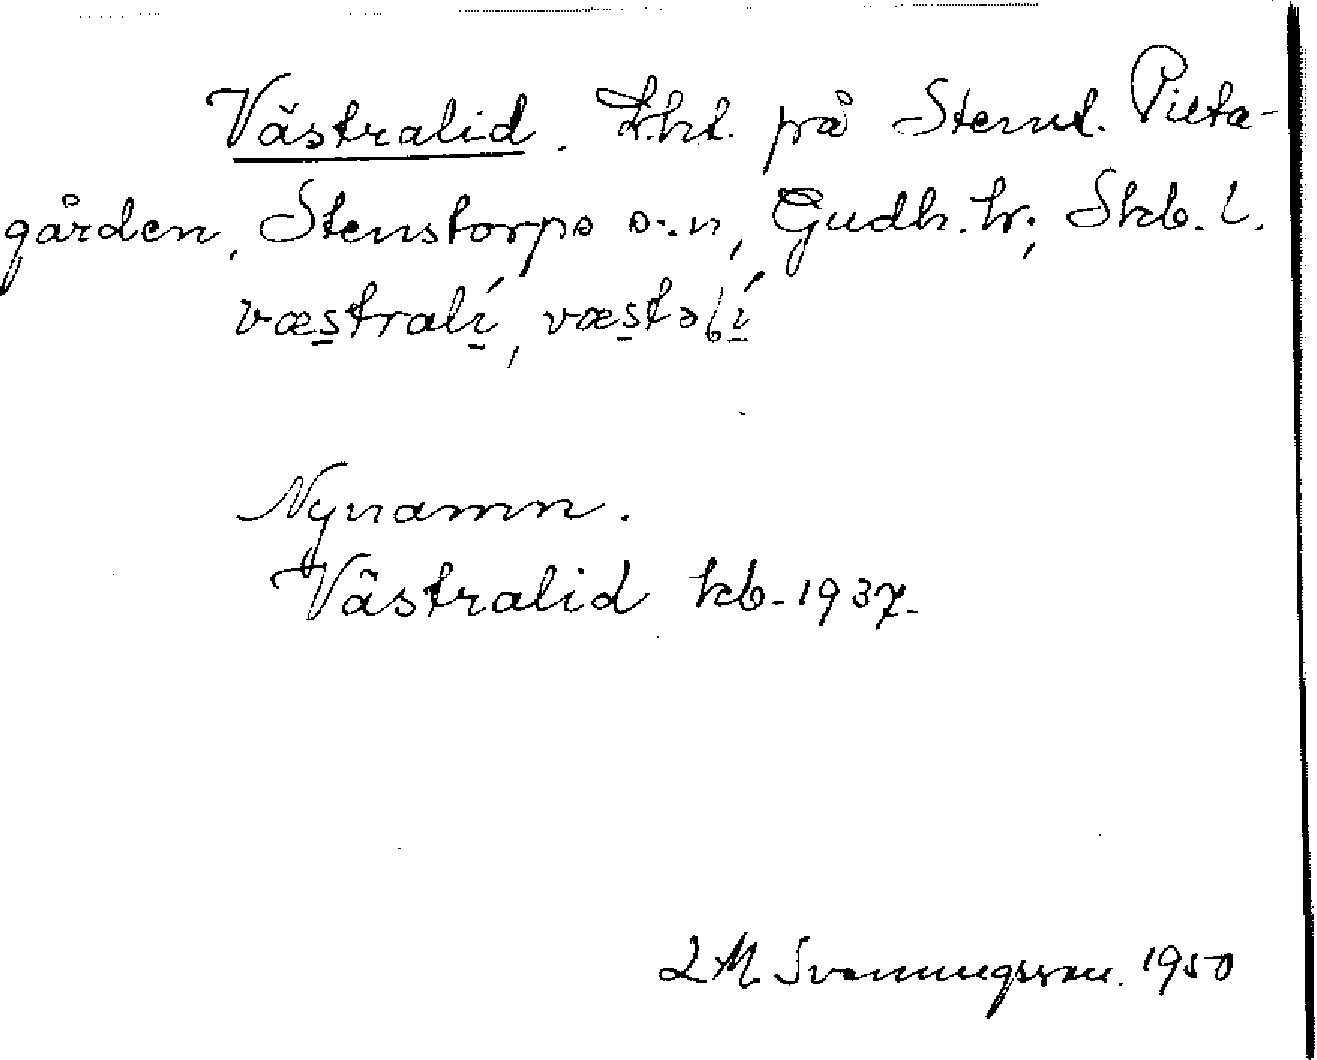 Västralid. Lht. på Sternt. Pilta-
gården, Stenstorps s:n, Gudh. hr; Skb. l.
væstralí, væstəlí
Nynamn.
Västralid kb. 1937.
L M. Svenungsson. 1950